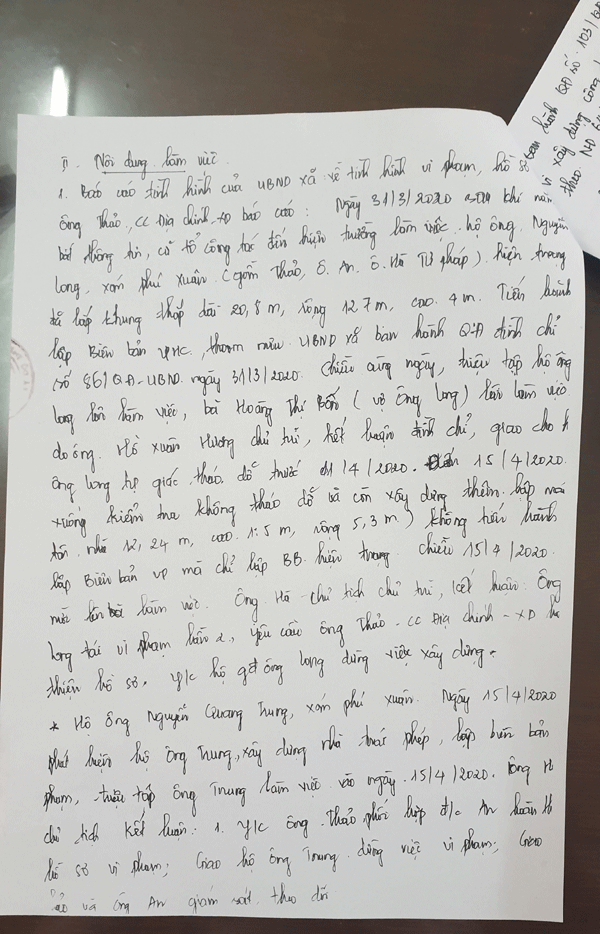 II. Nội dung làm việc.
1. Báo cáo tình hình của UBND xã về tình hình vi phạm, hồ sơ
Ông Thảo, CC Địa chính - XD báo cáo: Ngày 31/3/2020 sau khi nắm
bắt thông tin, có tổ công tác đến hiện trường làm việc hộ ông Nguyễn
Long, xóm phú xuân. (gồm Thảo, Ô. An, Ô. Hà Tư pháp). hiện trạng
đã lắp khung thép dài 20,8 m, rộng 12.7 m, cao 4 m. Tiến hành
lập Biên bản VPHC, tham mưu UBND xã ban hành QĐ đình chỉ
số 86/QĐ-UBND. ngày 31/3/2020. Chiều cùng ngày, triệu tập hộ ông
long lên làm việc, bà Hoàng Thị Bốn (vợ ông long) lên làm việc
do ông. Hồ xuân Hương chủ trì, kết luận đình chỉ, giao cho h
ông long tự giác tháo dỡ trước 01/4/2020. Đến 15/4/2020.
xuống kiểm tra không tháo dỡ và còn xây dựng thêm. lợp mái
tôn nhà 12,24 m, cao 1.5 m, rộng 5,3 m) không tiến hành
lập Biên bản vp mà chỉ lập BB. hiện trạng. chiều 15/4/2020.
mời lên làm việc. Ông Hà - chủ tịch chủ trì, kết luận: Ông
long tái vi phạm lần 2, yêu cầu ông Thảo - CC Địa chính - XD h
thiện hồ sơ. Y/c hộ gđ ông long dừng việc xây dựng.
* Hộ ông Nguyễn Quang Trung, xóm phú xuân. Ngày 15/4/2020
phát hiện hộ ông Trung, xây dựng nhà trái phép, lập biên bản
phạm, triệu tập ông Trung làm việc vào ngày 15/4/2020. Ông H
chủ tịch kết luận: 1. Y/c ông Thảo phối hợp đ/c An hoàn th
hồ sơ vi phạm; Giao hộ ông Trung dừng việc vi phạm; Giao
và ông An giám sát, theo dõi
ban hành QĐ số 103/QĐ
vi xây dựng công
theo NĐ